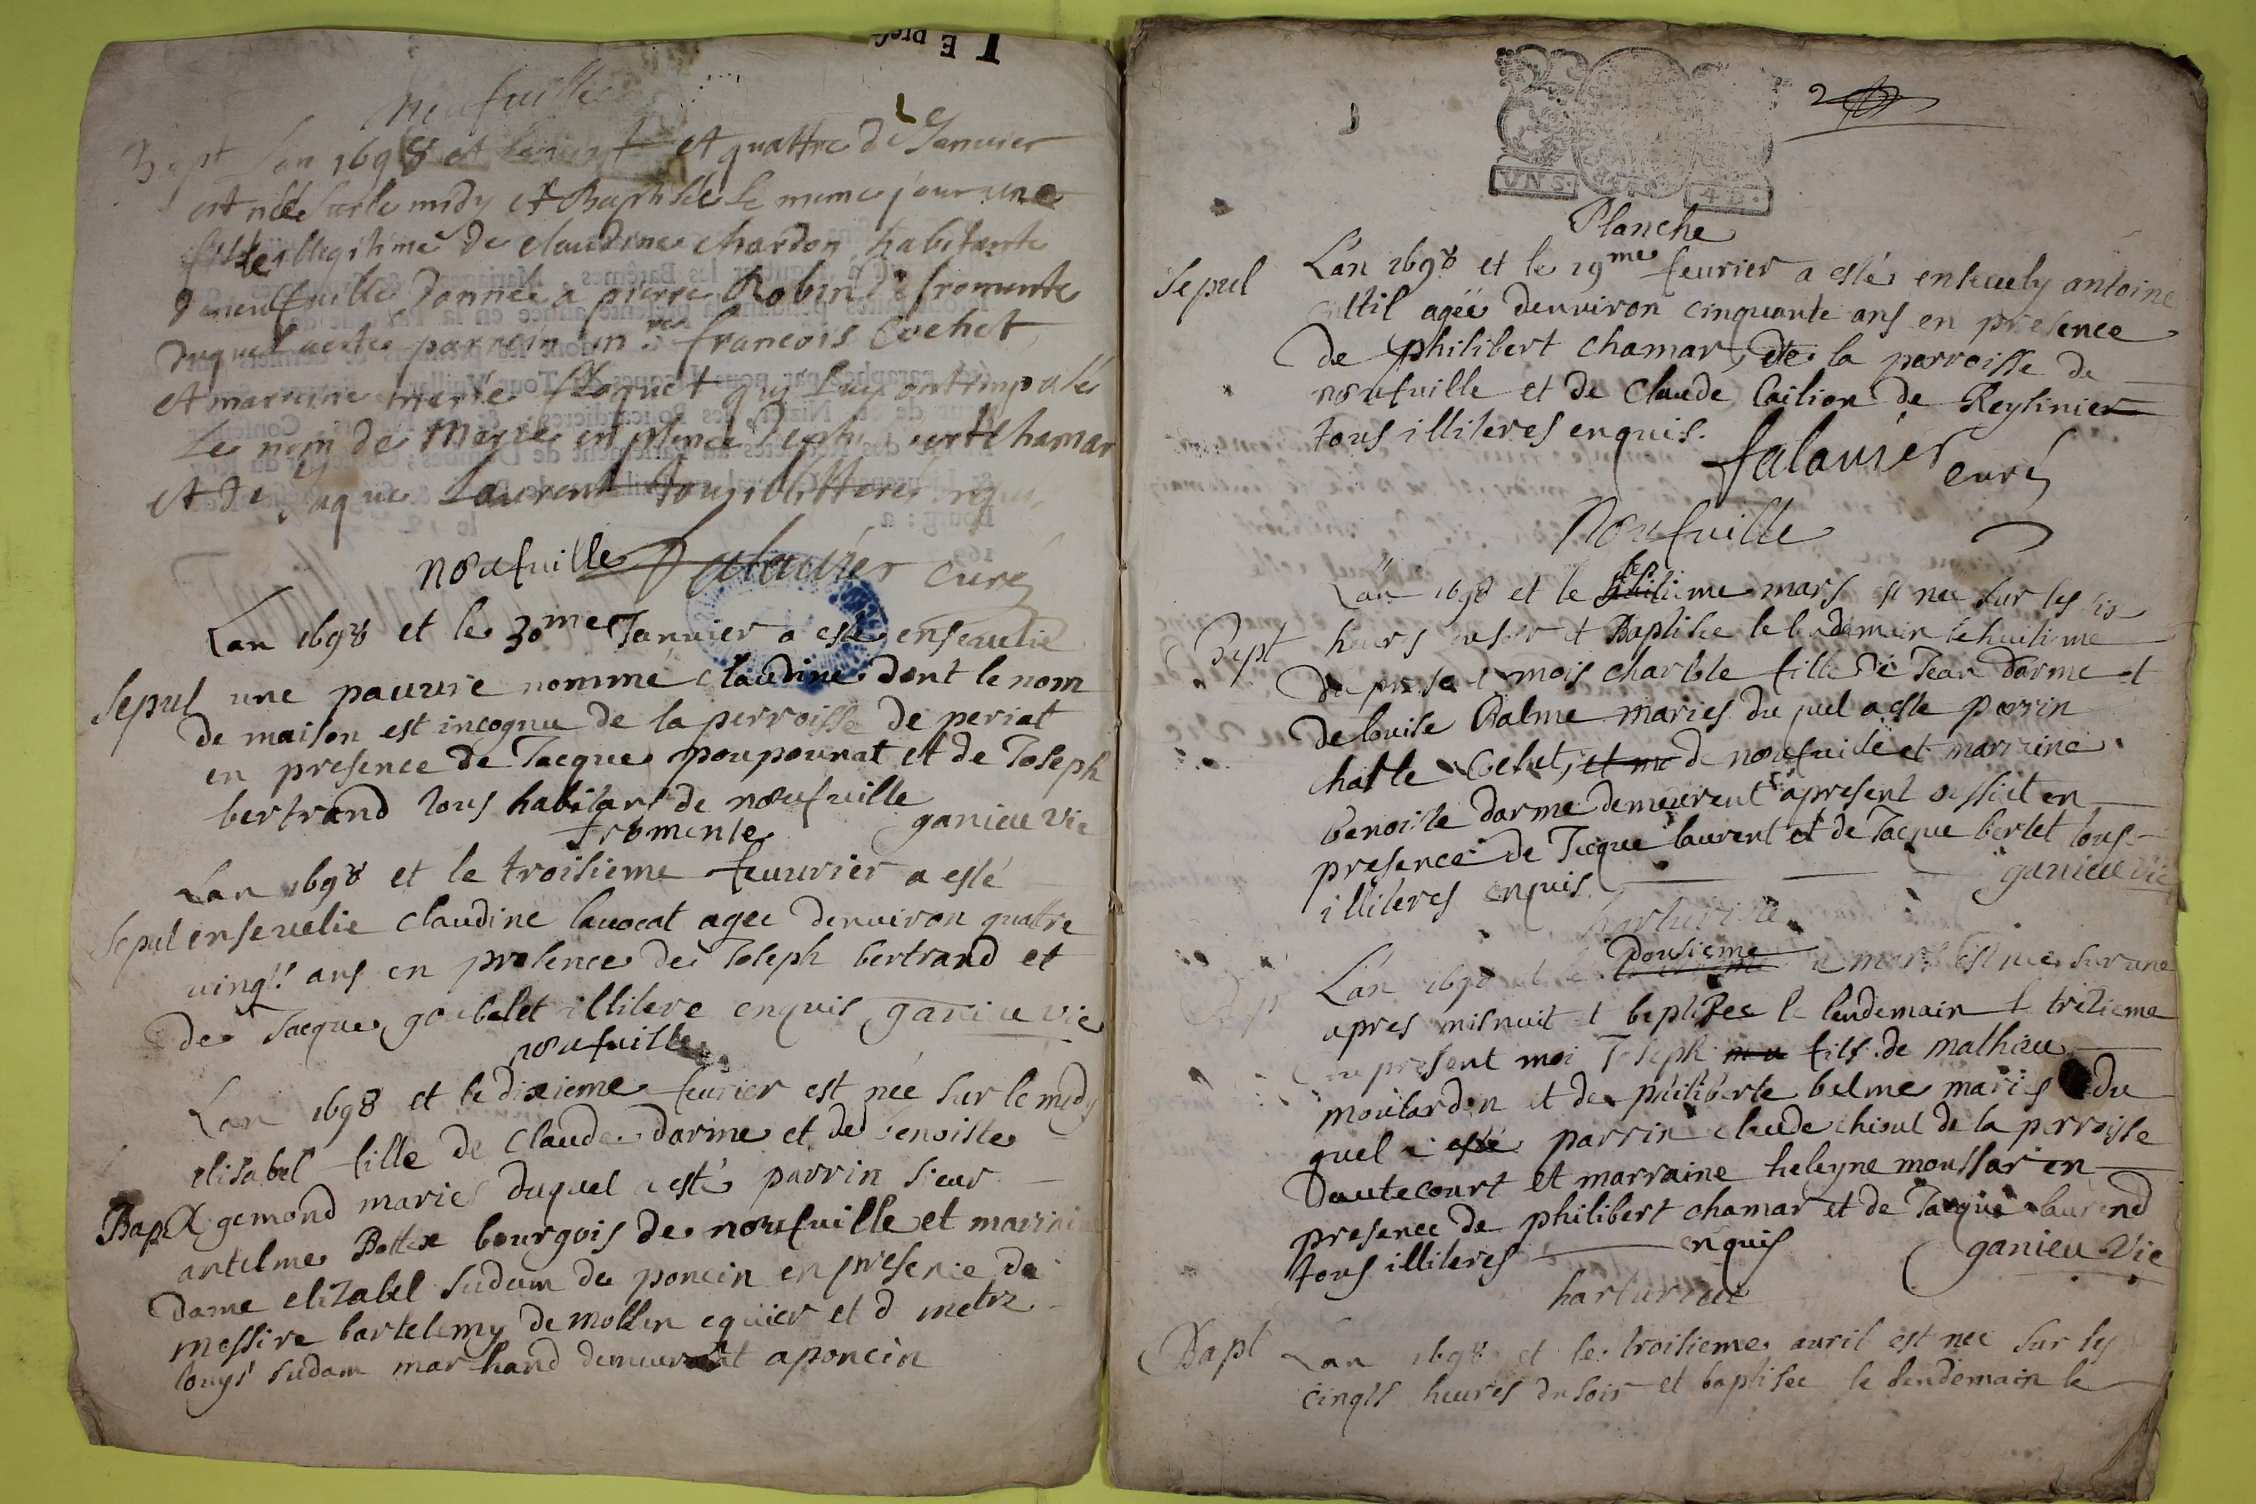 Neufuille
Bapt Lan 1698 et le vingt et quattre de Ianuier
est née sur le midy et Baptisée le mesme jour une
fille illegitime de claudine chardon habitante
de neufuille donnée a pierre Robin de fromente
duquel a esté parrein francois Cochet
et marreine marie Floquet quy luy ont imposé
le nom de Marie en
et de Iaque Laurent tous illitteres enquis
nœufuille Falauier curé
Lan 1698 et le 30me Ianuier a esté enseuelie
Sepul une pauure nomme claudine dont le nom
de maison est incognu de la perroisse de periat
en presence de Iacque poupounat et de Ioseph
bertrand tous habitans de nœufuille
ganieu vic
fromente
Lan 1698 et le troisieme feuurier a esté
Sepul enseuelie claudine lauocat agee denuiron quattre
uingts ans en presence de Ioseph bertrand et
de Iacque gobelet illitere enquis ganieu vic
nœufuille
Lan 1698 et le dixieme feurier est née sur le midy
elisabet fille de Claude darme et de benoiste
Bapt gemond maries duquel a esté parrin sieur
antelme Bottex bourgois de nœufuille et marrine
dame elizabet sudam de poncin en presence de
messire bartelemy de mollin equier et d
louys sudam marchand demeurant a poncin
VNS. 4 D.
2
Planche
Sepul Lan 1698 et le 19me feurier a esté enseuely antoine
agée denuiron cinquante ans en presence
de philibert chamar, de la parroisse de
nœufuille et de Claude Cailion de Reysinier
tous illiteres enquis.
falauier curé
Nœufuille
Lan 1698 et le sep huitieme mars est nee sur les six
Bapt heurs du soir et Baptisee le lendemain le huitieme
du presant mois charlote fille de Iean darme et
de louise Balme maries du quel a este parrin
charle Cochet, et ma de nœufuille et marraine
benoiste darme demeurent apresent en
presence de Iacque laurent et de Iacque bertet tous
illiteres enquis. ganieu vic
harturieu
Bapt Lan 1698 et le dousieme de mars est nee sur une
apres minuit et baptisee le lendemain le trezieme
du present moi Ioseph fils de mathieu
moutardon et de philiberte belme maries du
quel a esté parrin claude chioul de la perroisse
dautecourt et marraine heleyne moussar en
presence de philibert chamar et de Iacque laurend
tous illiteres enquis ganieu Vic
harturieu
Bapt Lan 1698 et le troisieme auril est nee sur les
cinqts heures du soir et baptisee le lendemain le